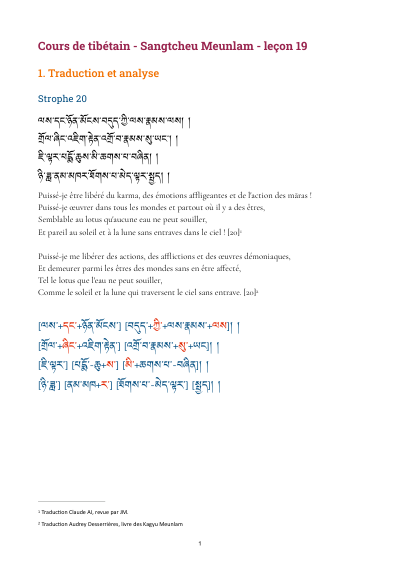 Cours de tibétain - Sangtcheu Meunlam - leçon 19
1. Traduction et analyse
Strophe 20
ལས་དང་ཉོན་མོངས་བདུད་ཀྱི་ལས་རྣམས་ལས། །
གྲོལ་ཞིང་འཇིག་རྟེན་འགྲོ་བ་རྣམས་སུ་ཡང་། །
ཇི་ལྟར་པདྨོ་ཆུས་མི་ཆགས་པ་བཞིན། །
ཉི་ཟླ་ནམ་མཁར་ཐོགས་པ་མེད་ལྟར་སྤྱད། །
Puissé-je être libéré du karma, des émotions affligeantes et de l'action des māras !
Puissé-je œuvrer dans tous les mondes et partout où il y a des êtres,
Semblable au lotus qu'aucune eau ne peut souiller,
Et pareil au soleil et à la lune sans entraves dans le ciel ! [20]¹
Puissé-je me libérer des actions, des afflictions et des œuvres démoniaques,
Et demeurer parmi les êtres des mondes sans en être affecté,
Tel le lotus que l'eau ne peut souiller,
Comme le soleil et la lune qui traversent le ciel sans entrave. [20]²
[ལས་+དང་+ཉོན་མོངས་] [བདུད་+ཀྱི་+ལས་རྣམས་+ལས]། །
[གྲོལ་+ཞིང་+འཇིག་རྟེན་] [འགྲོ་བ་རྣམས་+སུ་+ཡང]། །
[ཇི་ལྟར་] [པདྨོ་-ཆུ+ས་] [མི་+ཆགས་པ་-བཞིན]། །
[ཉི་ཟླ་] [ནམ་མཁ+ར་] [ཐོགས་པ་-མེད་ལྟར་] [སྤྱད]། །
¹ Traduction Claude AI, revue par JM.
² Traduction Audrey Desserrières, livre des Kagyu Meunlam
1